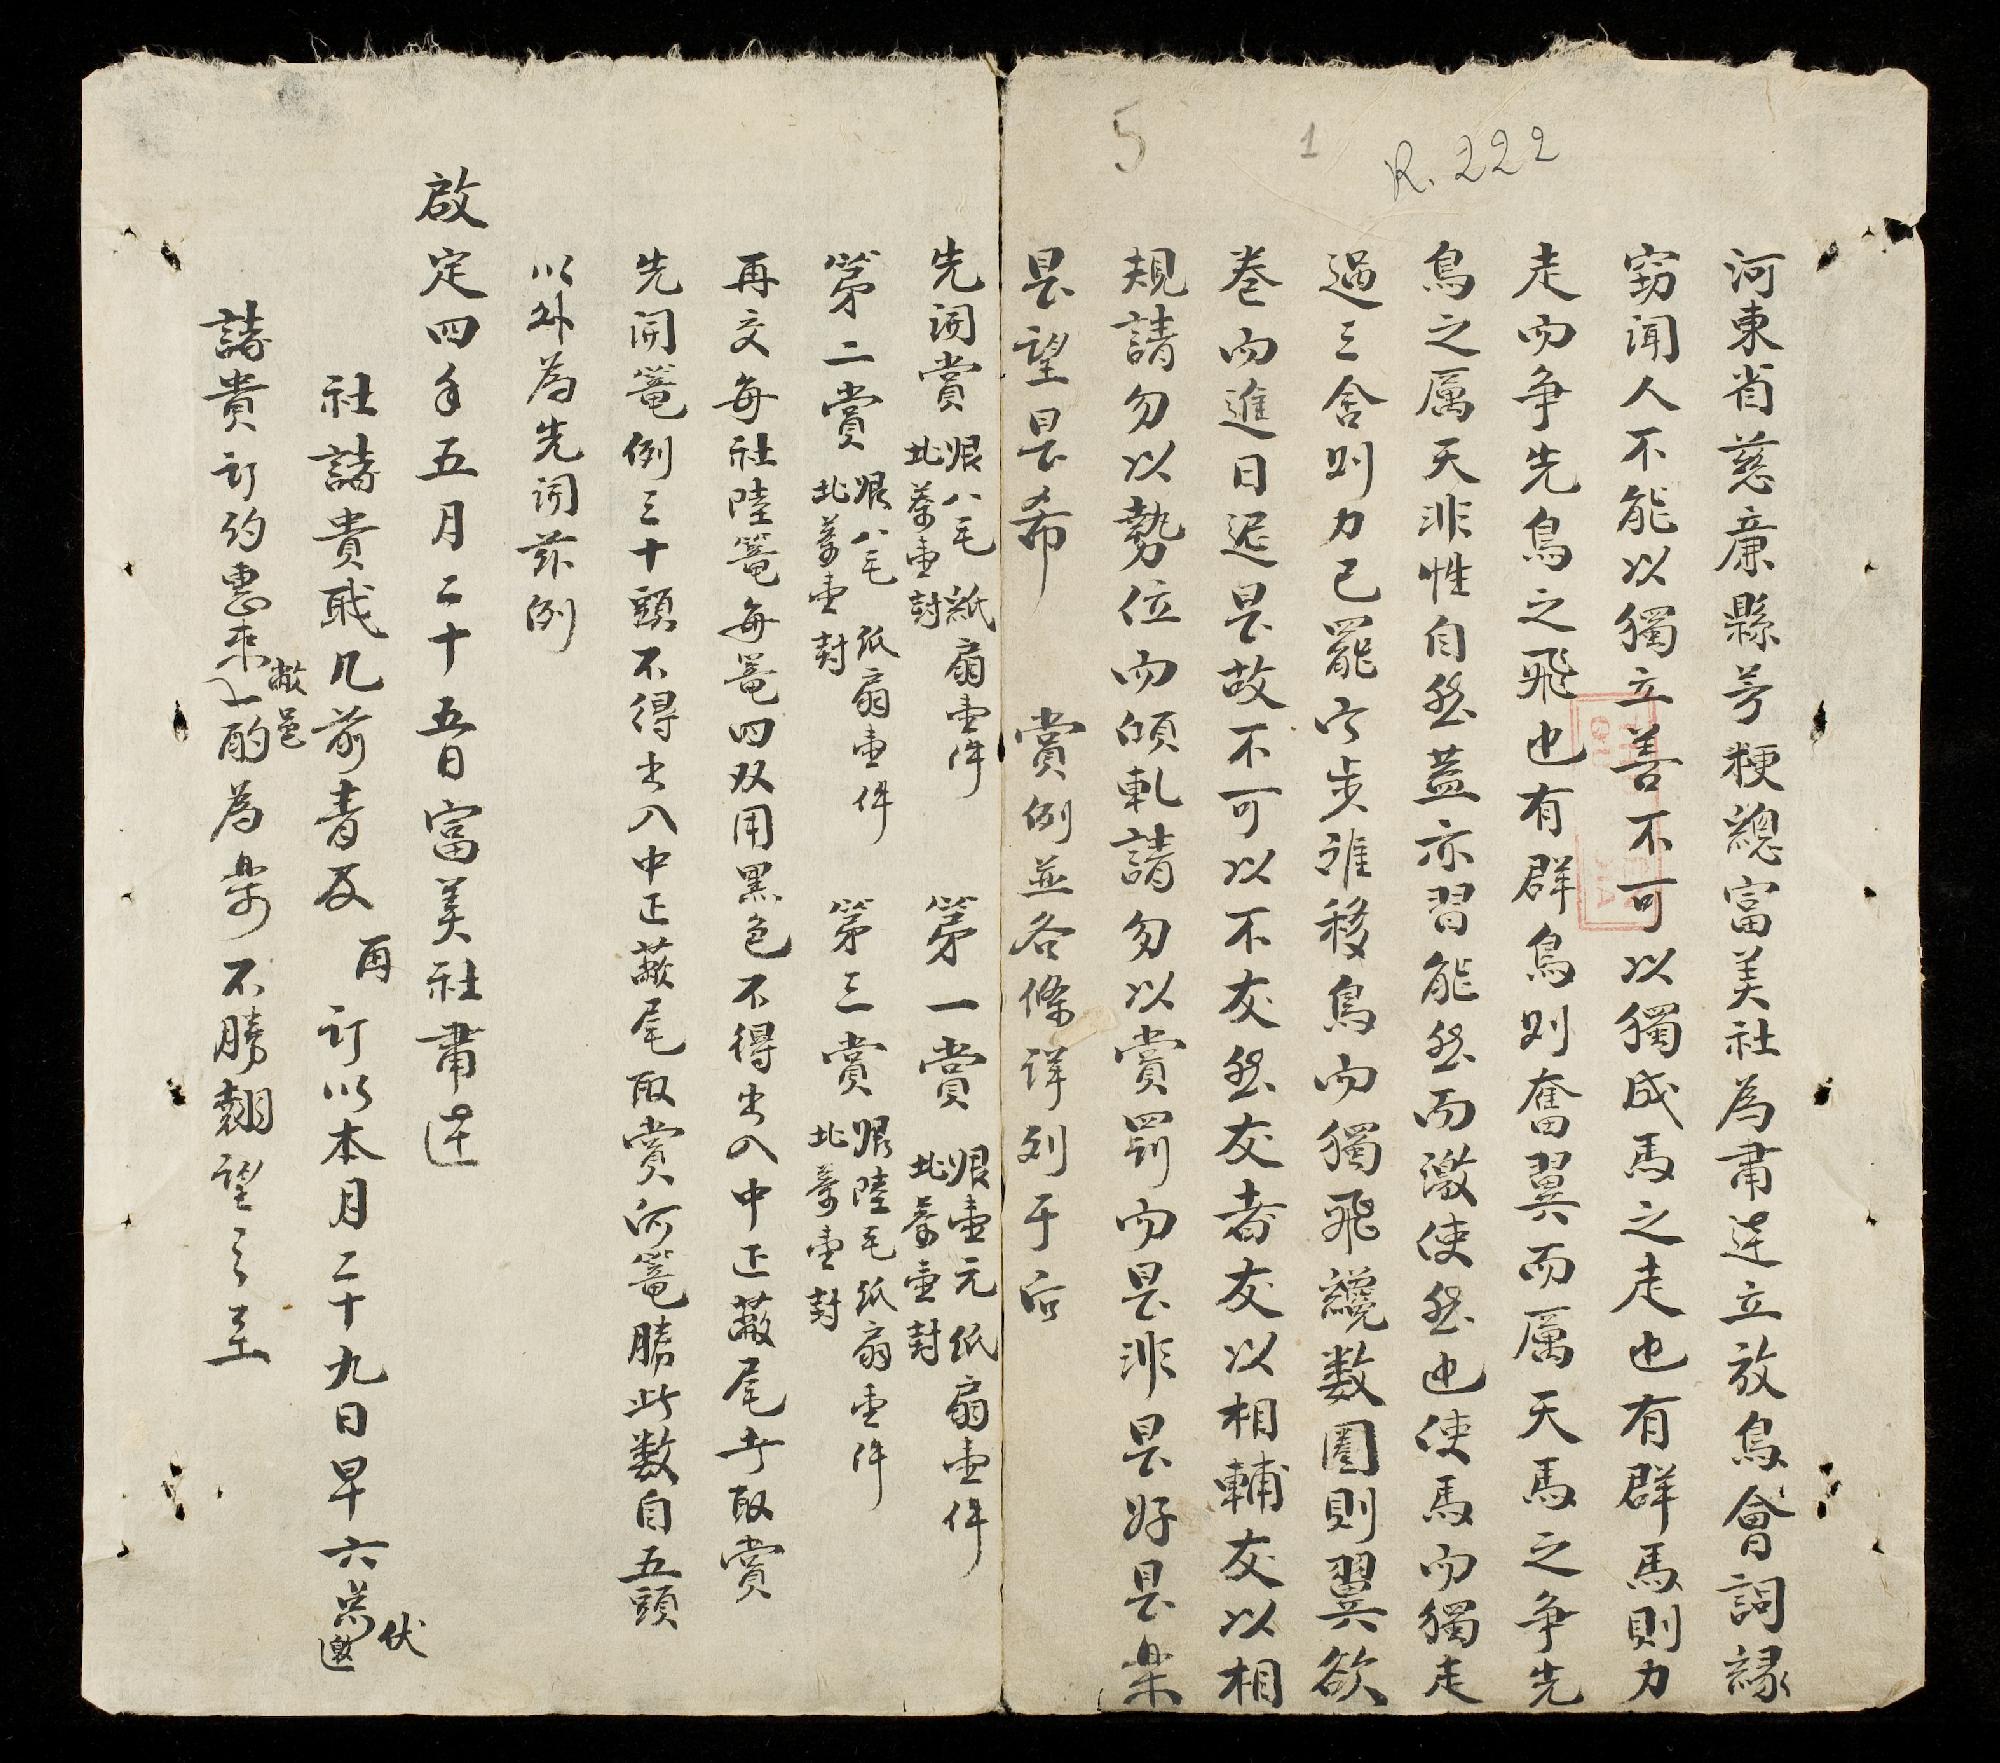 5 1 R. 222
河東省慈廉縣芳粳總富美社為肅達立放鳥會詞緣
窃闻人不能以獨立善不可以獨成馬之走也有群馬則力
走而争先鳥之飛也有群鳥则奮翼而厲天馬之争先
鳥之厲天非性自然蓋亦習能然而激使然也使馬而獨走
過三舍则力已罷 步誰移鳥而獨飛纔数圍則翼欲
卷而進日迟是故不可以不友然友者友以相輔友以相
規請勿以勢位而傾軋請勿以賞罰而是非是好是樂
是望是希 賞例並各條詳列于后
先闹賞 銀八毛紙扇壹件 北茶壹封 第一賞 銀壹元紙扇壹件 北茶壹封
第二賞 銀八毛紙扇壹件 北茶壹封 第三賞 銀陸毛紙扇壹件 北茶壹封
再交每社陸篭每篭四双用黑色不得出入中正蔽尾才取賞
先開篭例三十頭不得出入中正蔽尾取賞何篭勝此数自五頭
以外為先闹茲例
啟定四年五月二十五日富美社肅達
社諸貴职几前青及 再 訂以本月二十九日早六 伏邀
諸貴訂約惠来敝邑一酌為樂不勝翹望之至